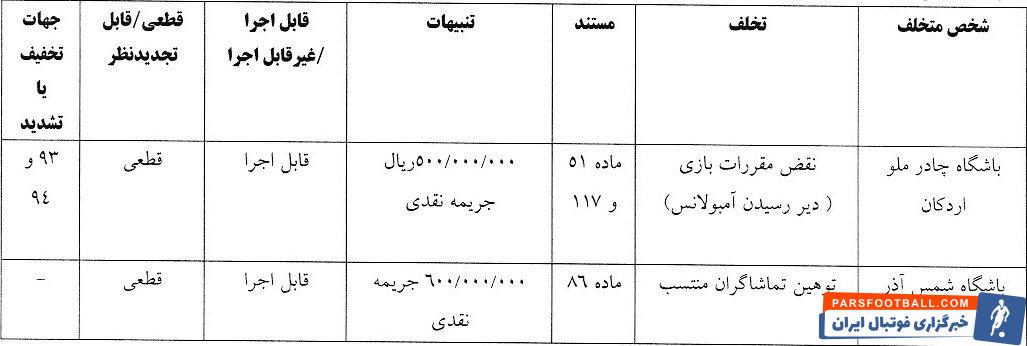 شخص متخلف
تخلف
مستند
تنبیهات
قابل اجرا
/غیرقابل اجرا
قطعی/قابل
تجدیدنظر
جهات
تخفیف
یا
تشدید
باشگاه چادر ملو
اردکان
نقض مقررات بازی
( دیر رسیدن آمبولانس)
ماده ۵۱
و ۱۱۷
۵۰۰/۰۰۰/۰۰۰ریال
جریمه نقدی
قابل اجرا
قطعی
۹۳ و
۹۴
باشگاه شمس آذر
توهین تماشاگران منتسب
ماده ۸۶
۶۰۰/۰۰۰/۰۰۰ جریمه
نقدی
قابل اجرا
قطعی
-
PARSFOOTBALL.COM
خبرگزاری فوتبال ایران